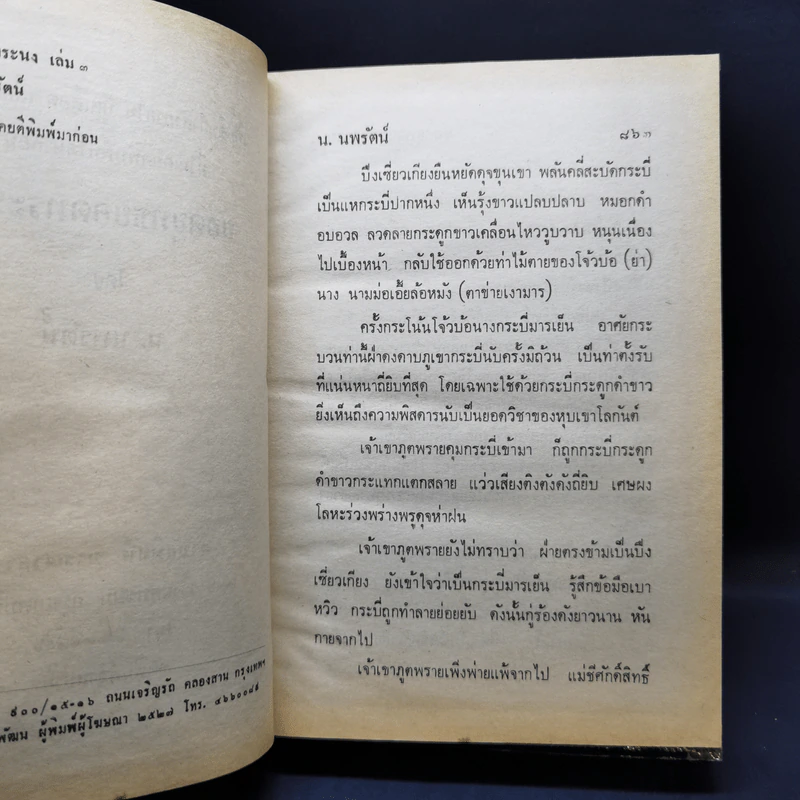 ระนง เล่ม ๓
รัตน์
คยตีพิมพ์มาก่อน
๙๐๐/๑๕-๑๖ ถนนเจริญรัถ คลองสาน กรุงเทพฯ
พัฒน ผู้พิมพ์ผู้โฆษณา ๒๕๒๗ โทร. ๔๖๖๐๐๘๕
น. นพรัตน์
๘๖๓
บึงเซี่ยวเกียงยืนหยัดดุจขุนเขา พลันคลี่สะบัดกระบี่
เป็นแหกระบี่ปากหนึ่ง เห็นรุ้งขาวแปลบปลาบ หมอกดำ
อบอวล ลวดลายกระดูกขาวเคลื่อนไหววูบวาบ หนุนเนื่อง
ไปเบื้องหน้า กลับใช้ออกด้วยท่าไม้ตายของโจ้วบ้อ (ย่า)
นาง นามม่อเอี้ยล้อหมัง (ตาข่ายเงามาร)
ครั้งกระโน้นโจ้วบ้อนางกระบี่มารเย็น อาศัยกระ
บวนท่านี้ฝ่าดงดาบภูเขากระบี่นับครั้งมิถ้วน เป็นท่าตั้งรับ
ที่แน่นหนาถี่ยิบที่สุด โดยเฉพาะใช้ด้วยกระบี่กระดูกดำขาว
ยิ่งเห็นถึงความพิสดารนับเป็นยอดวิชาของหุบเขาโลกันต์
เจ้าเขาภูตพรายคุมกระบี่เข้ามา ก็ถูกกระบี่กระดูก
ดำขาวกระแทกแตกสลาย แว่วเสียงติงตังดังถี่ยิบ เศษผง
โลหะร่วงพร่างพรูดุจห่าฝน
เจ้าเขาภูตพรายยังไม่ทราบว่า ฝ่ายตรงข้ามเป็นบึง
เซี่ยวเกียง ยังเข้าใจว่าเป็นกระบี่มารเย็น รู้สึกข้อมือเบา
หวิว กระบี่ถูกทำลายย่อยยับ ดังนั้นกู่ร้องดังยาวนาน หัน
กายจากไป
เจ้าเขาภูตพรายเพิ่งพ่ายแพ้จากไป แม่ชีศักดิ์สิทธิ์